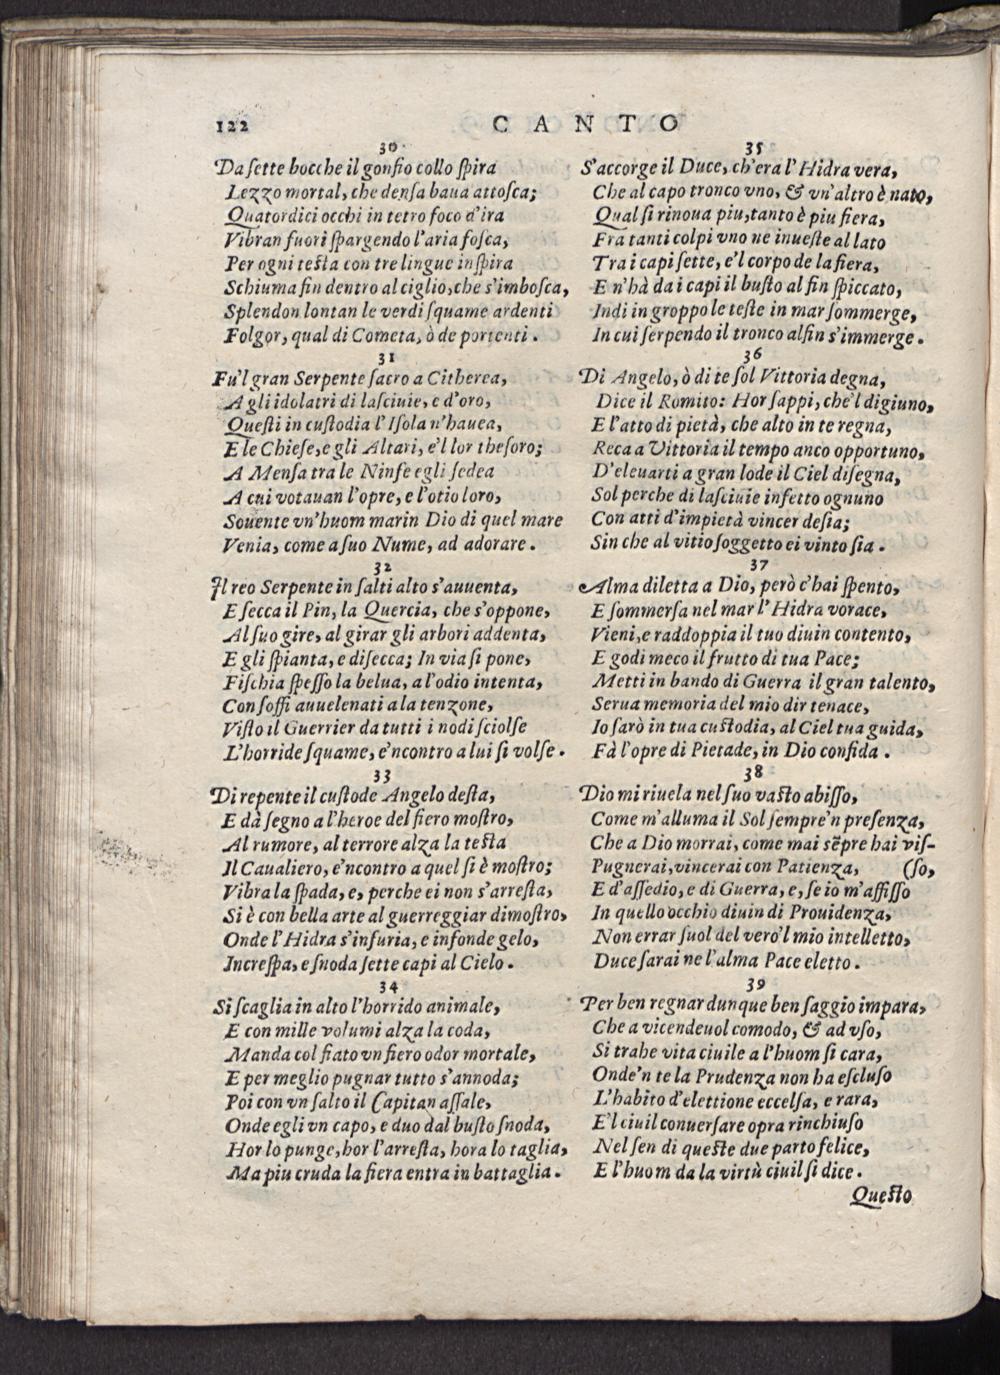 122
CANTO
30
Da ſette bocche il gonfio collo ſpira
Lezzo mortal, che denſa baua attoſca;
Quatordici occhi in tetro foco d'ira
Vibran fuori ſpargendo l'aria foſca,
Per ogni teſta con tre lingue inſpira
Schiuma fin dentro al ciglio, che s'imboſca,
Splendon lontan le verdi ſquame ardenti
Folgor, qual di Cometa, ò de portenti.
31
Fu'l gran Serpente ſacro a Citherea,
A gli idolatri di laſciuie, e d'oro,
Queſti in cuſtodia l'Iſola n'hauea,
E le Chieſe, e gli Altari, e'l lor theſoro;
A Menſa tra le Ninfe egli ſedea
A cui votauan l'opre, e l'otio loro,
Souente vn'huom marin Dio di quel mare
Venia, come a ſuo Nume, ad adorare.
32
Il reo Serpente in ſalti alto s'auuenta,
E ſecca il Pin, la Quercia, che s'oppone,
Al ſuo gire, al girar gli arbori addenta,
E gli ſpianta, e diſecca; In via ſi pone,
Fiſchia ſpeſſo la belua, a l'odio intenta,
Con ſoffi auuelenati a la tenzone,
Viſto il Guerrier da tutti i nodi ſciolſe
L'horride ſquame, e'ncontro a lui ſi volſe.
33
Di repente il cuſtode Angelo deſta,
E dà ſegno a l'heroe del fiero moſtro,
Al rumore, al terrore alza la teſta
Il Caualiero, e'ncontro a quel ſi è moſtro;
Vibra la ſpada, e, perche ei non s'arreſta,
Si è con bella arte al guerreggiar dimoſtro,
Onde l'Hidra s'infuria, e infonde gelo,
Increſpa, e ſnoda ſette capi al Cielo.
34
Si ſcaglia in alto l'horrido animale,
E con mille volumi alza la coda,
Manda col fiato vn fiero odor mortale,
E per meglio pugnar tutto s'annoda;
Poi con vn ſalto il Capitan aſſale,
Onde egli vn capo, e duo dal buſto ſnoda,
Hor lo punge, hor l'arreſta, hora lo taglia,
Ma piu cruda la fiera entra in battaglia.
35
S'accorge il Duce, ch'era l'Hidra vera,
Che al capo tronco vno, & vn'altro è nato,
Qual ſi rinoua piu, tanto è piu fiera,
Fra tanti colpi vno ne inueſte al lato
Tra i capi ſette, e'l corpo de la fiera,
E n'hà da i capi il buſto al fin ſpiccato,
Indi in groppo le teſte in mar ſommerge,
In cui ſerpendo il tronco alfin s'immerge.
36
Di Angelo, ò di te ſol Vittoria degna,
Dice il Romito: Hor ſappi, che'l digiuno,
E l'atto di pietà, che alto in te regna,
Reca a Vittoria il tempo anco opportuno,
D'eleuarti a gran lode il Ciel diſegna,
Sol perche di laſciuie infetto ognuno
Con atti d'impietà vincer deſia;
Sin che al vitio ſoggetto ei vinto ſia.
37
Alma diletta a Dio, però c'hai ſpento,
E ſommerſa nel mar l'Hidra vorace,
Vieni, e raddoppia il tuo diuin contento,
E godi meco il frutto di tua Pace;
Metti in bando di Guerra il gran talento,
Serua memoria del mio dir tenace,
Io ſarò in tua cuſtodia, al Ciel tua guida,
Fà l'opre di Pietade, in Dio confida.
38
Dio mi riuela nel ſuo vaſto abiſſo,
Come m'alluma il Sol ſempre'n preſenza,
Che a Dio morrai, come mai sẽpre hai viſ-
Pugnerai, vincerai con Patienza, (ſo,
E d'aſſedio, e di Guerra, e, ſe io m'affiſſo
In quello occhio diuin di Prouidenza,
Non errar ſuol del vero'l mio intelletto,
Duce ſarai ne l'alma Pace eletto.
39
Per ben regnar dunque ben ſaggio impara,
Che a vicendeuol comodo, & ad vſo,
Si trahe vita ciuile a l'huom ſi cara,
Onde'n te la Prudenza non ha eſcluſo
L'habito d'elettione eccelſa, e rara,
E'l ciuil conuerſare opra rinchiuſo
Nel ſen di queſte due parto felice,
E l'huom da la virtù ciuil ſi dice.
Queſto